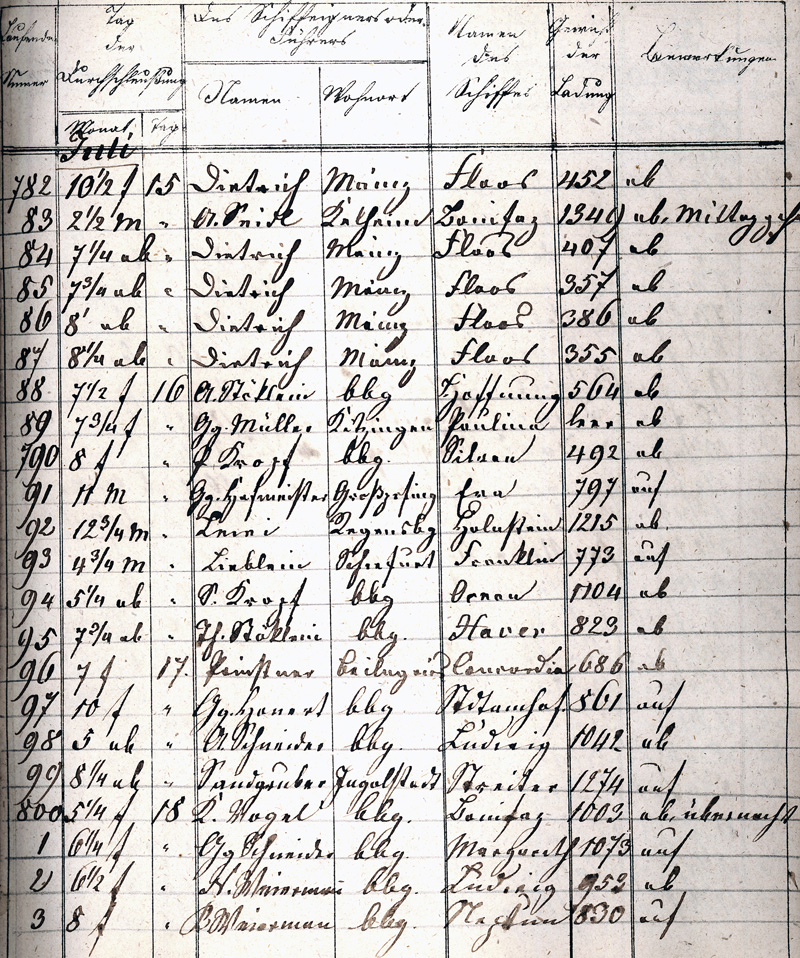 Laufende Numer | Tag der Durchschleußung | Des Schiffeigners oder Führers | Namen des Schiffes | Gewicht der Ladung | Bemerkungen
Monat | Tag | Namen | Wohnort
Juli
782 10½ f 15 Dietrich Mainz Floos 452 ab
83 2½ M " A. Seidl Kelheim Bonifaz 1340 ab, Mittag
84 7¼ ab " Dietrich Mainz Floos 407 ab
85 7¾ ab " Dietrich Mainz Floos 357 ab
86 8 ab " Dietrich Mainz Floos 386 ab
87 8¼ ab " Dietrich Mainz Floos 355 ab
88 7½ f 16 A. Stöklein bbg Hoffnung 564 ab
89 7¾ f " Gg. Müller Kitzingen Paulina leer ab
790 8 f " P. Kropf bbg. 492 ab
91 11 M " Gg. Hofmeister 797 auf
92 12¾ M " Regensbg Holnstein 1215 ab
93 4¾ M " Lieblein Franklin 773 auf
94 5¼ ab " S. Kropf bbg Ocean 1104 ab
95 7¾ ab " Th. Stöklein bbg. Haver 823 ab
96 7 f 17. Concordia 686 ab
97 10 f " Gg. bbg Stdtamhof 861 auf
98 5 ab " A. Schneider bbg. Ludwig 1042 ab
99 8¼ ab " Sandgruber Ingolstadt Streiter 1274 auf
800 5¼ f 18 K. Vogel bbg. Bonifaz 1003 ab, übernacht
1 6¼ f " Gg. Schneider bbg. Margareth 1073 auf
2 6½ f " N. Weierman bbg. Ludwig 953 ab
3 8 f " B. Weierman bbg. Neptun 830 auf